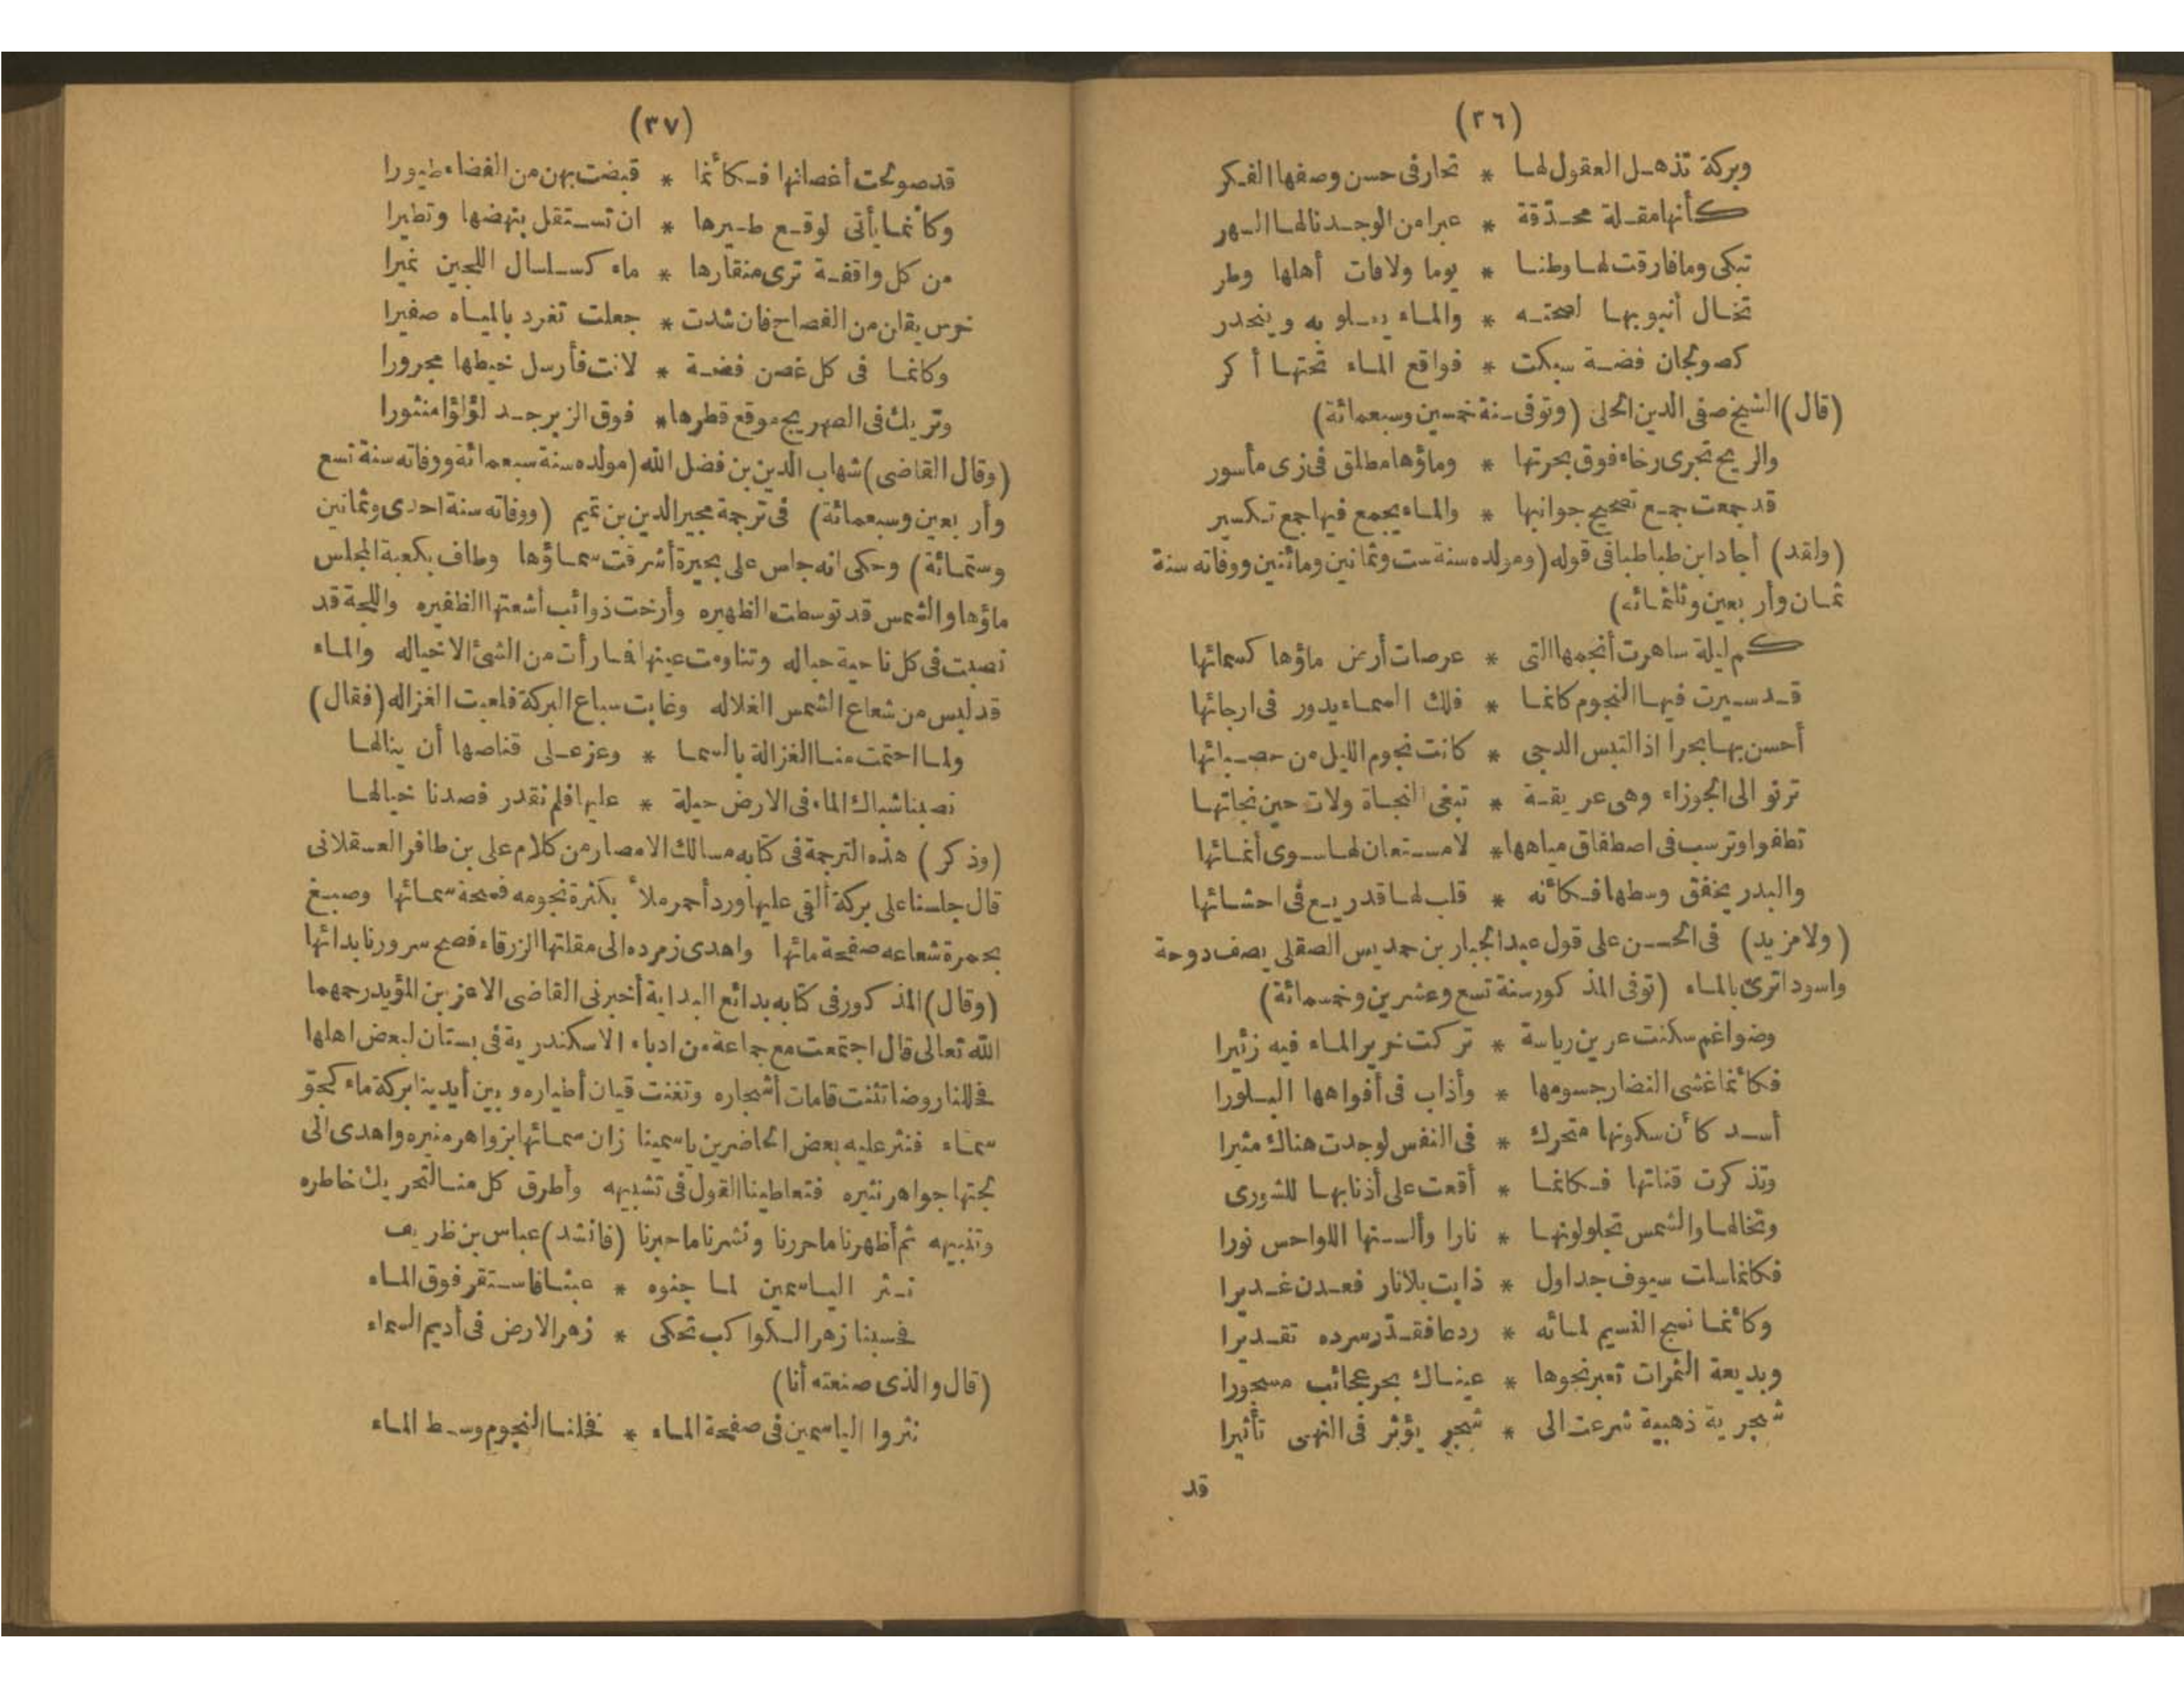 (٣٦)
وبركة تذهل العقول لها * تحار فى حسن وصفها الفكر
كأنها مقلة محدّقة * عبرا من الوجد نالها السهر
تبكى وما فارقت لها وطنا * يوما ولا فات أهلها وطر
تخال أنبوبها لصحته * والماء يعلو به وينحدر
كصولجان فضة سبكت * فواقع الماء تحتها أكر
(قال) الشيخ صفى الدين الحلى (وتوفى سنة خمسين وسبعمائة)
والريح تجرى رخاء فوق بحرتها * وماؤها مطلق فى زى مأسور
قد جمعت جمع تصحيح جوانبها * والماء يجمع فيها جمع تكسير
(ولقد) أجاد ابن طباطبا فى قوله (ومولده سنة ست وثمانين ومائتين ووفاته سنة
ثمان وأربعين وثلثمائه)
كم ليلة ساهرت أنجمها التى * عرصات أرض ماؤها كسمائها
قد سيرت فيها النجوم كانما * فلك السماء يدور فى ارجائها
أحسن بها بحرا اذا التبس الدجى * كانت نجوم الليل من حصبائها
ترنو الى الجوزاء وهى عريقة * تبغى النجاة ولات حين نجاتها
تطفوا وترسب فى اصطفاق مياهها * لا مستعان لها سوى أغمائها
والبدر يخفق وسطها فكأنه * قلب لها قد ريع فى احشائها
(ولا مزيد) فى الحسن على قول عبد الجبار بن حمديس الصقلى يصف دوحة
واسودا ترى بالماء (توفى المذكور سنة تسع وعشرين وخمسمائة)
وضواغم سكنت عرين رياسة * تركت خرير الماء فيه زئيرا
فكأنما غشى النضار جسومها * وأذاب فى أفواهها البلورا
أسد كأن سكونها متحرك * فى النفس لو جدت هناك مثيرا
وتذكرت قناتها فكانما * أقعت على أذنابها للشورى
وتخالها والشمس تجلو لونها * نارا وألسنتها اللواحس نورا
فكانما سلت سيوف جداول * ذابت بلا نار فعدن غديرا
وكأنما نسج النسيم لمائه * ردعا فقدّر سرده تقديرا
وبديعة الثمرات تعبر نحوها * عيناك بحر عجائب مسجورا
شجرية ذهبية شرعت الى * شجر يؤثر فى النهى تأثيرا
قد
(٣٧)
قد صولحت أغصانها فكأنما * قبضت بهن من الفضاء طيورا
وكأنما يأتى لوقع طيرها * ان تستقل بنهضها وتطيرا
من كل واقفة ترى منقارها * ماء كسلسال اللجين نميرا
خرس يقلن من الفصاح فان شدت * جعلت تغرد بالمياه صفيرا
وكانما فى كل غصن فضة * لانت فأرسل خيطها مجرورا
وتريك فى الصهريج موقع قطرها * فوق الزبرجد لؤلؤا منثورا
(وقال القاضى) شهاب الدين بن فضل الله (مولده سنة سبعمائة ووفاته سنة تسع
وأربعين وسبعمائة) فى ترجمة مجير الدين بن تميم (ووفاته سنة احدى وثمانين
وستمائة) وحكى انه جلس على بحيرة أشرقت سماؤها وطاف بكعبة المجلس
ماؤها والشمس قد توسطت الظهيره وأرخت ذوائب أشعتها الظفيره واللجة قد
نصبت فى كل ناحية حباله وتناومت عينها فما رأت من الشئ الا خياله والماء
قد لبس من شعاع الشمس الغلاله وغابت سباع البركة فلعبت الغزاله (فقال)
ولما احتمت منا الغزالة بالسما * وعز على قناصها أن ينالها
نصبنا شباك الماء فى الارض حيلة * عليها فلم نقدر فصدنا خيالها
(وذكر) هذه الترجمة فى كتابه مسالك الامصار من كلام على بن ظافر العسقلانى
قال جلسنا على بركة ألقى عليها ورد أحمر ملأ بكثرة نجومه فسحة سمائها وصبغ
بحمرة شعاعه صفحة مائها واهدى زمرده الى مقلتها الزرقاء فصح سرورنا بدائها
(وقال) المذكور فى كتابه بدائع البداية أخبرنى القاضى الاعز بن المؤيد رحمهما
الله تعالى قال اجتمعت مع جماعة من ادباء الاسكندرية فى بستان لبعض اهلها
فحللنا روضا تثنت قامات أشجاره وتغنت قيان أطياره وبين أيدينا بركة ماء كجوّ
سماء فنثر عليه بعض الحاضرين ياسمينا زان سمائها بزواهر منيره واهدى الى
لجتها جواهر نثيره فتعاطينا القول فى تشبيهه وأطرق كل منا لتحريك خاطره
وتنبيهه ثم أظهرنا ما حررنا ونشرنا ما حبرنا (فانشد) عباس بن ظريف
نثر الياسمين لما جنوه * عبثا فاستقر فوق الماء
فحسبنا زهر الكواكب تحكى * زهر الارض فى أديم السماء
(قال والذى صنعته أنا)
نثروا الياسمين فى صفحة الماء * فخلنا النجوم وسط الماء